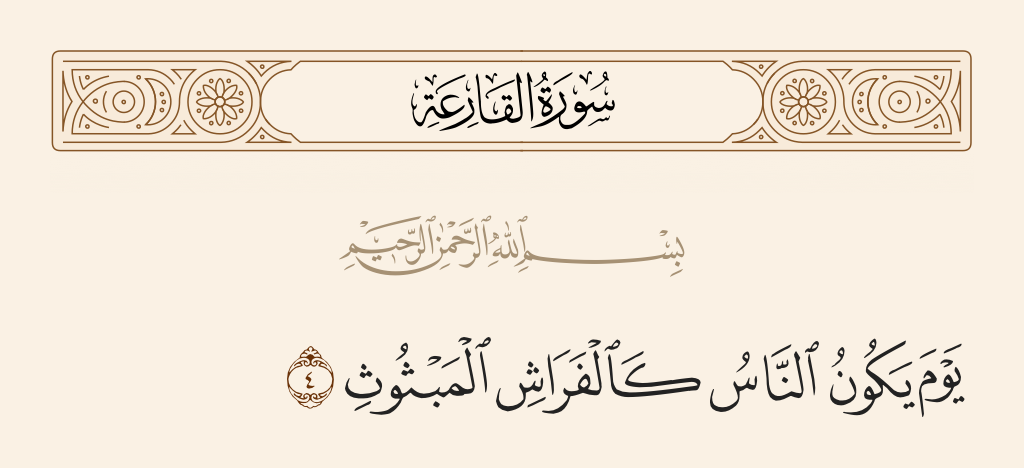 سُورَةُ القَارِعَةِ
بِسْمِ ٱللَّهِ ٱلرَّحْمَٰنِ ٱلرَّحِيمِ
يَوْمَ يَكُونُ ٱلنَّاسُ كَٱلْفَرَاشِ ٱلْمَبْثُوثِ ٤